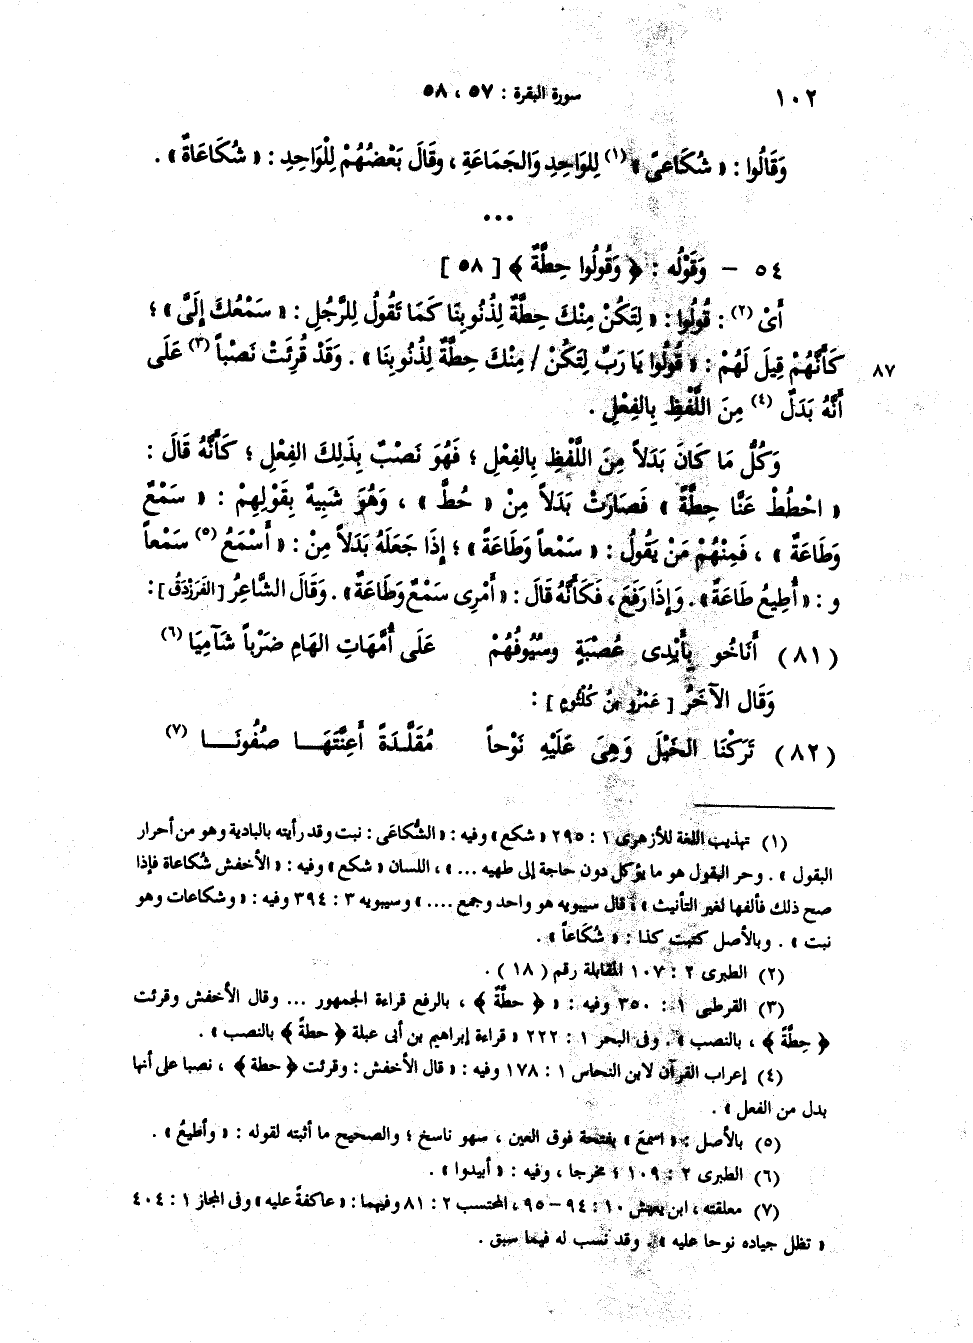 ١٠٢ سورة البقرة : ٥٧ ، ٥٨
وَقَالُوا : « شُكَاعىً » (١) لِلوَاحِدِ وَالجَمَاعَةِ ، وقَالَ بَعْضُهُمْ لِلْوَاحِدِ : « شُكَاعَاةٌ » .
•••
٥٤ – وَقَوْلُه : ﴿ وَقُولُوا حِطَّةٌ ﴾ [ ٥٨ ]
أَىْ (٢) : قُولُوا : « لِتَكُنْ مِنْكَ حِطَّةٌ لِذُنُوبِنَا كَمَا تَقُولُ لِلرَّجُلِ : « سَمْعُكَ إِلَىَّ » ؛
كَأَنَّهُمْ قِيلَ لَهُمْ : « قُولُوا يَا رَبِّ لِتَكُنْ / مِنْكَ حِطَّةٌ لِذُنُوبِنَا » . وَقَدْ قُرِئَتْ نَصْباً (٣) عَلَى ٨٧
أَنَّهُ بَدَلٌ (٤) مِنَ اللَّفْظِ بِالفِعْلِ .
وَكُلُّ مَا كَانَ بَدَلاً مِنَ اللَّفْظِ بِالفِعْلِ ؛ فَهُوَ نَصْبٌ بِذَلِكَ الفِعْلِ ؛ كَأَنَّهُ قَالَ :
« احْطُطْ عَنَّا حِطَّةً » فَصَارَتْ بَدَلاً مِنْ « حُطَّ » ، وَهُوَ شَبِيهٌ بِقَوْلِهِمْ : « سَمْعٌ
وَطَاعَةٌ » ، فَمِنْهُمْ مَنْ يَقُولُ : « سَمْعاً وَطَاعَةً » ؛ إِذَا جَعَلَهُ بَدَلاً مِنْ : « أَسْمَعُ (٥) سَمْعاً
و : « أُطِيعُ طَاعَةً » . وَإِذَا رَفَعَ ، فَكَأَنَّهُ قَالَ : « أَمْرِى سَمْعٌ وَطَاعَةٌ » . وَقَالَ الشَّاعِرُ [ الفَرَزْدَقُ ] :
(٨١) أَنَاخُو بِأَيْدِى عُصْبَةٍ وسُيُوفُهُمْ عَلَى أُمَّهَاتِ الهَامِ ضَرْباً شَآمِيَا (٦)
وَقَال الآخَرُ [ عَمْرُو بنُ كُلْثُومٍ ] :
(٨٢) تَرَكْنَا الخَيْلَ وَهِىَ عَلَيْهِ نَوْحاً مُقَلَّدَةً أَعِنَّتَهَا صُفُونَا (٧)
(١) تهذيب اللغة للأزهرى ١ : ٢٩٥ « شكع » وفيه : « الشُّكاعَى : نبت وقد رأيته بالبادية وهو من أحرار
البقول » . وحر البقول هو ما يؤكل دون حاجة إلى طهيه ... » ، اللسان « شكع » وفيه : « الأخفش شُكاعاة فإذا
صح ذلك فألفها لغير التأنيث » ، قال سيبويه هو واحد وجمع .... » وسيبويه ٣ : ٣٩٤ وفيه : « وشكاعات وهو
نبت » . وبالأصل كتبت كذا : « شُكَاعاً » .
(٢) الطبرى ٢ : ١٠٧ المقابلة رقم ( ١٨ ) .
(٣) القرطبى ١ : ٣٥٠ وفيه : « ﴿ حطَّةٌ ﴾ ، بالرفع قراءة الجمهور ... وقال الأخفش وقرئت
﴿ حِطَّةً ﴾ ، بالنصب » . وفى البحر ١ : ٢٢٢ « قراءة إبراهيم بن أبى عبلة ﴿ حطةً ﴾ بالنصب » .
(٤) إعراب القرآن لابن النحاس ١ : ١٧٨ وفيه : « قال الأخفش : وقرئت ﴿ حطة ﴾ ، نصبا على أنها
بدل من الفعل » .
(٥) بالأصل : « اسمعَ » بفتحة فوق العين ، سهو ناسخ ؛ والصحيح ما أثبته لقوله : « وأطيعُ » .
(٦) الطبرى ٢ : ١٠٩ ؛ مخرجا ، وفيه : « أبيدوا » .
(٧) معلقته ، ابن يعيش ١٠ : ٩٤ – ٩٥ ، المحتسب ٢ : ٨١ وفيهما : « عاكفةً عليه » وفى المجاز ١ : ٤٠٤
« تظل جياده نوحا عليه » . وقد نسب له فيما سبق .